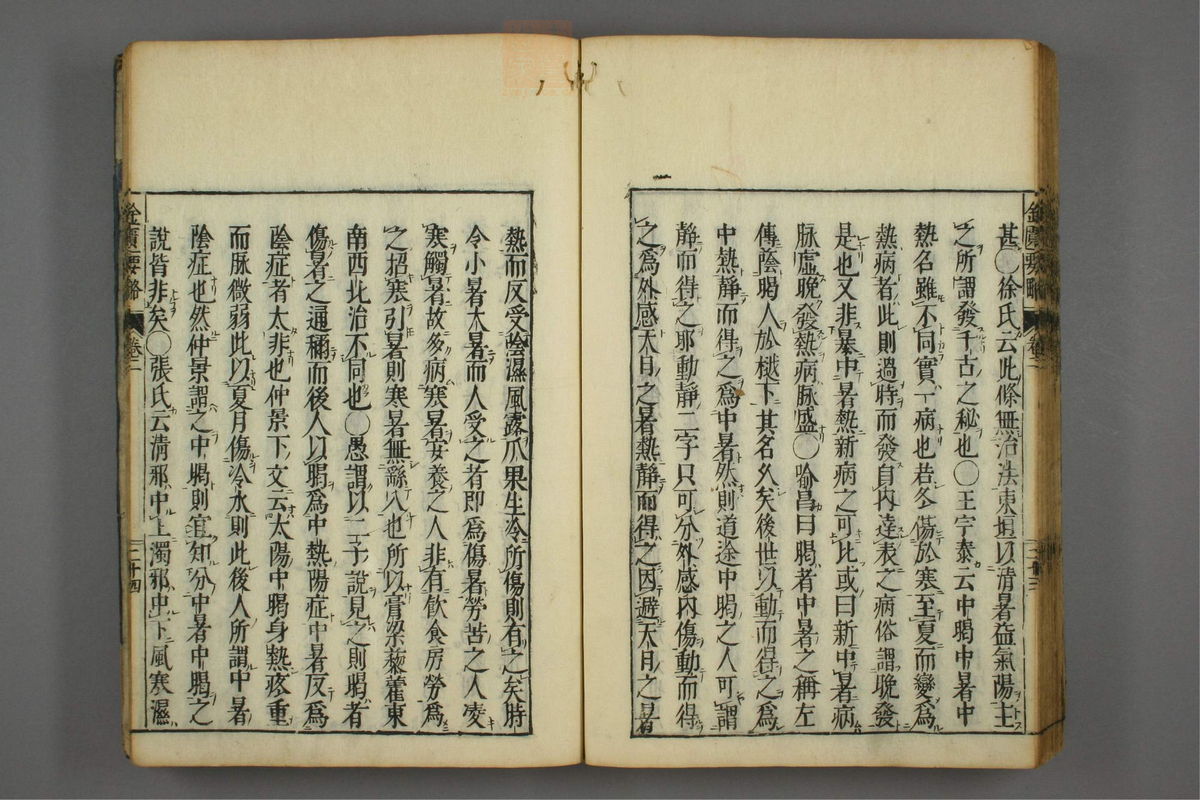 甚〇徐氏云此條無治法東垣以清暑益氣湯主
之所謂發千古之秘也〇王宇泰云中暍中暑中
熱名雖不同實一病也若冬傷於寒至夏而變爲
熱病者此則過時而發自內達表之病俗謂晚發
是也又非暴中暑熱新病之可比或曰新中暑病
脉虛晚發熱病脉盛〇喻昌曰暍者中暑之稱左
傳蔭暍人於樾下其名久矣後世以動而得之爲
中熱靜而得之爲中暑然則道途中暍之人可謂
靜而得之耶動靜二字只可分外感內傷動而得
之爲外感天日之暑熱靜而得之因避天日之暑
金匱要略 卷二 二十三
熱而反受陰濕風露瓜果生冷所傷則有之矣時
令小暑大暑而人受之者即爲傷暑勞苦之人凌
寒觸暑故多病寒暑安養之人非有飲食房勞爲
之招寒引暑則寒暑無繇入也所以膏粱藜藿東
南西北治不同也〇愚謂以二子說見之則暍者
傷暑之通稱而後人以暍爲中熱陽症中暑反爲
陰症者太非也仲景下文云太陽中暍身熱疼重
而脉微弱此以夏月傷冷水則此後人所謂中暑
陰症也然仲景謂之中暍則宜知分中暑中暍之
說皆非矣〇張氏云清邪中上濁邪中下風寒濕
金匱要略 卷二 二十四